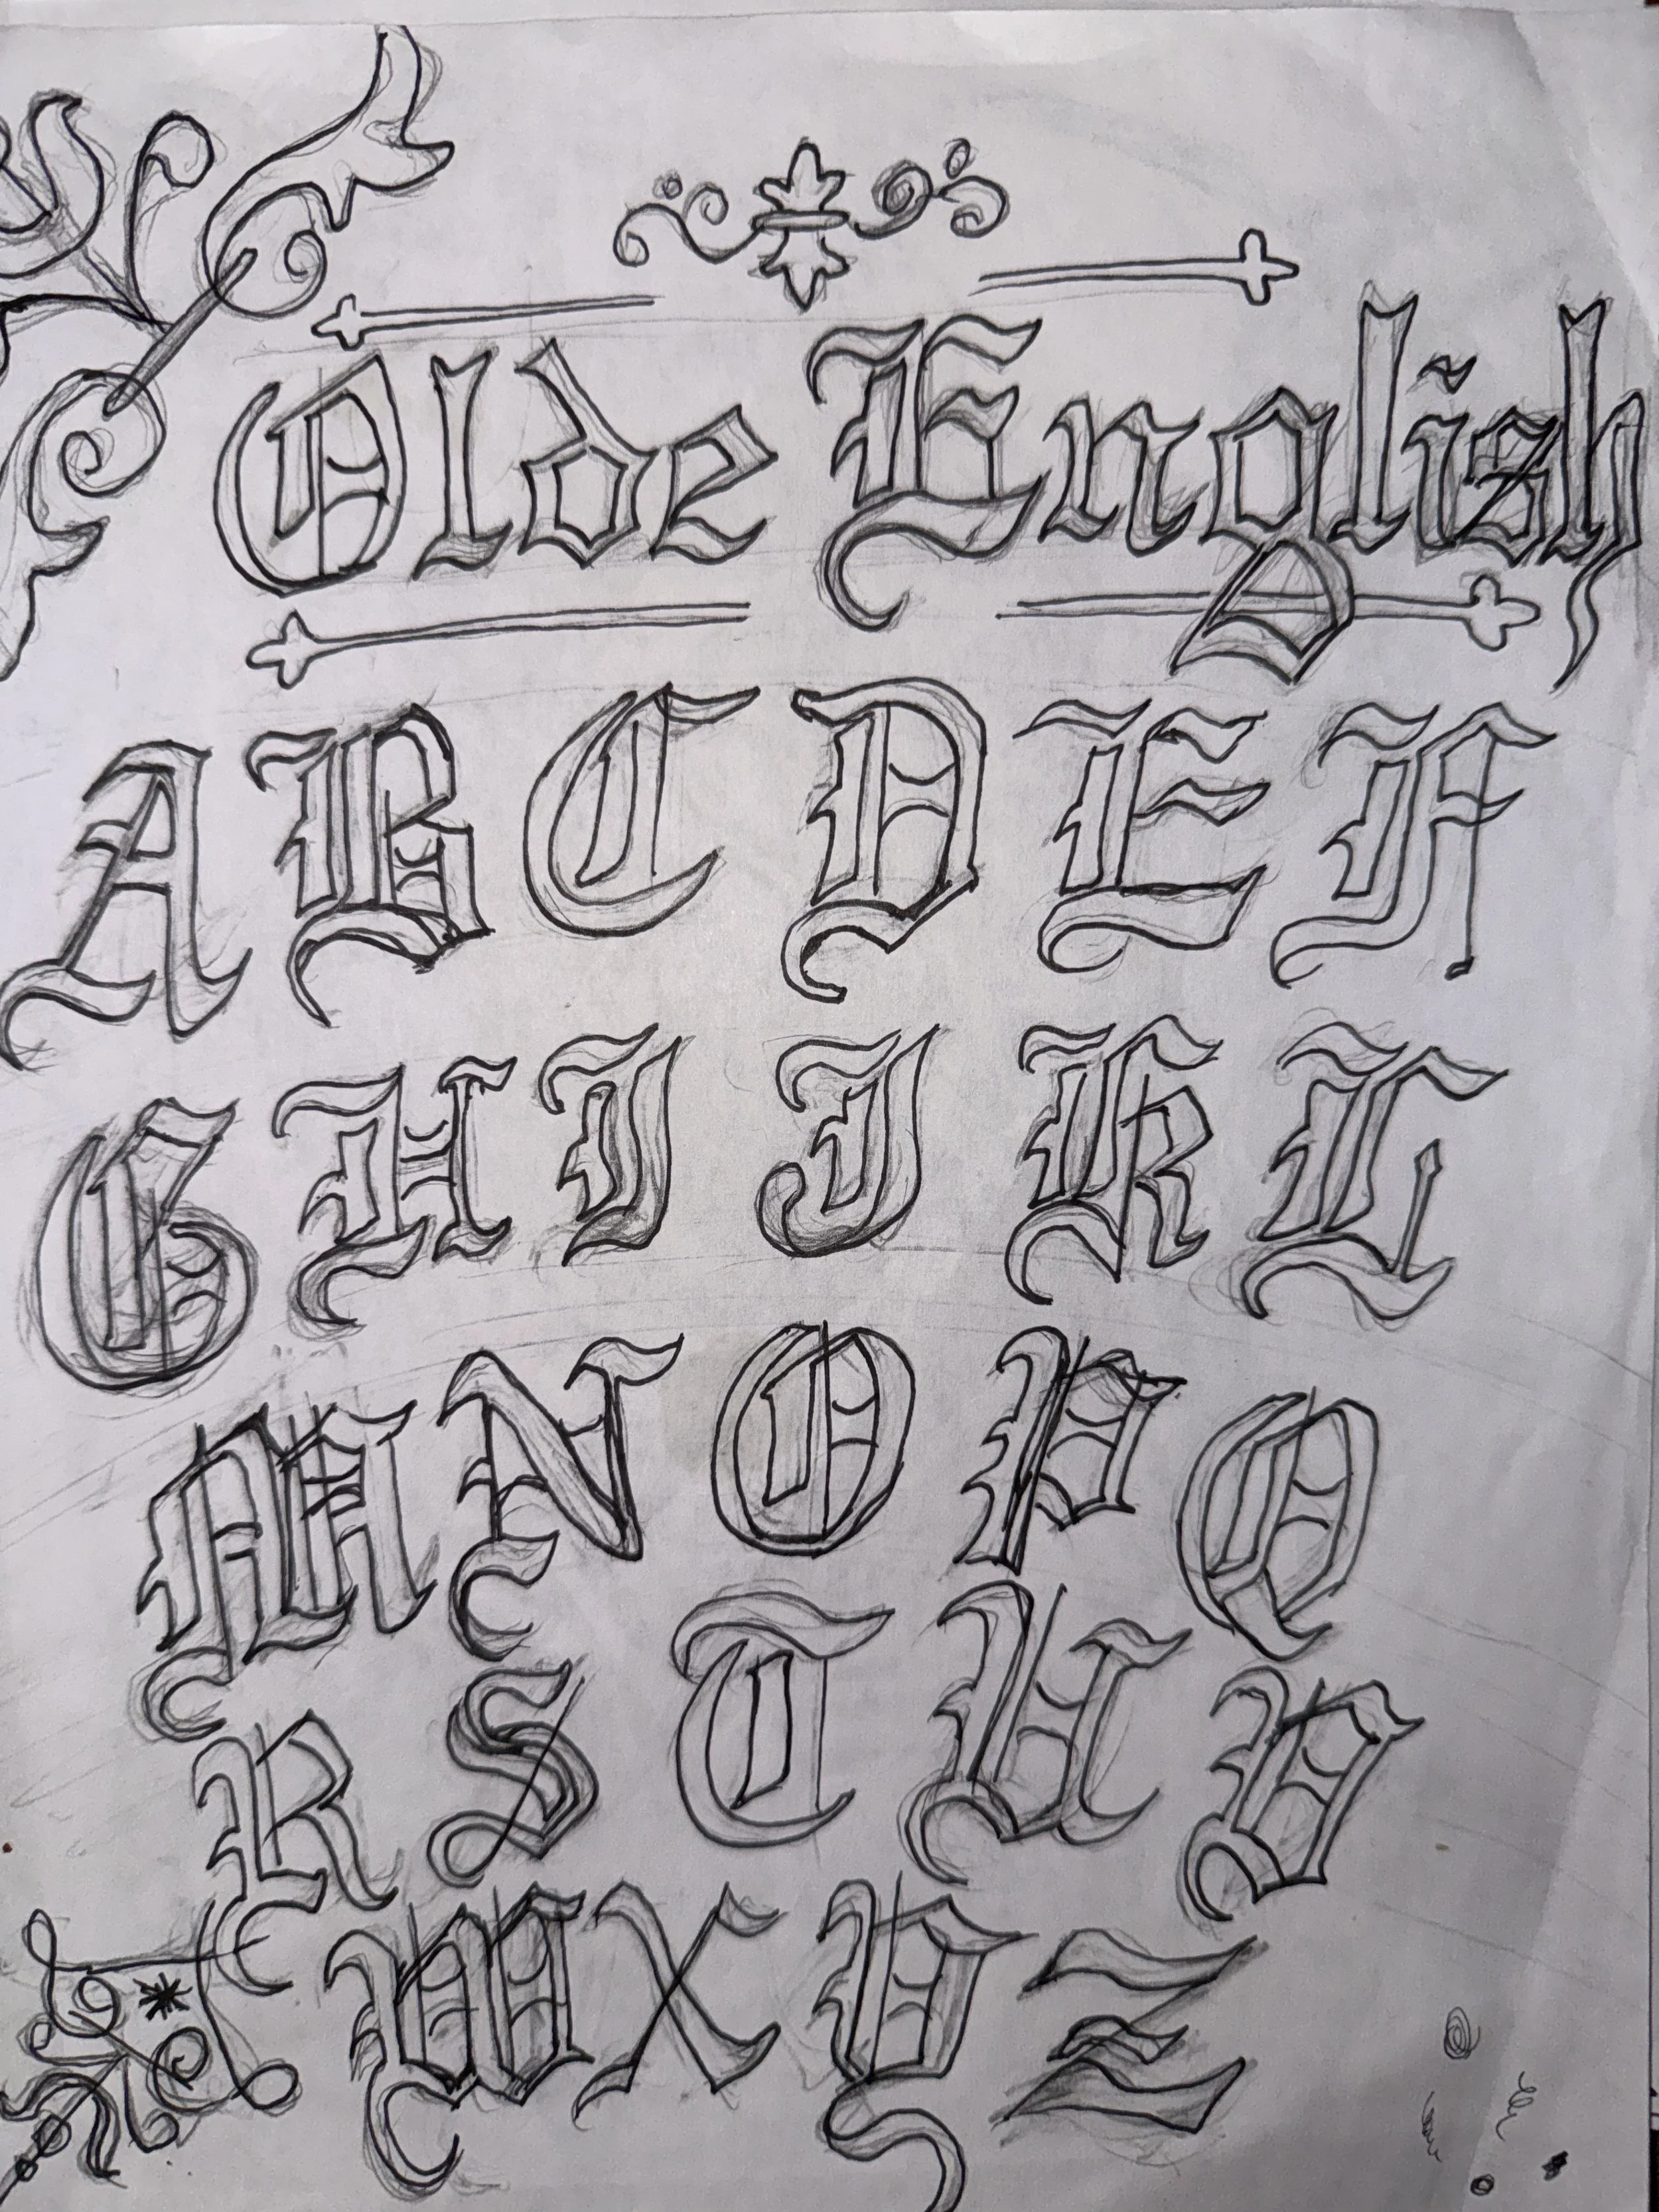 Olde English
A B C D E F
G H I J K L
M N O P Q
R S T U V
W X Y Z